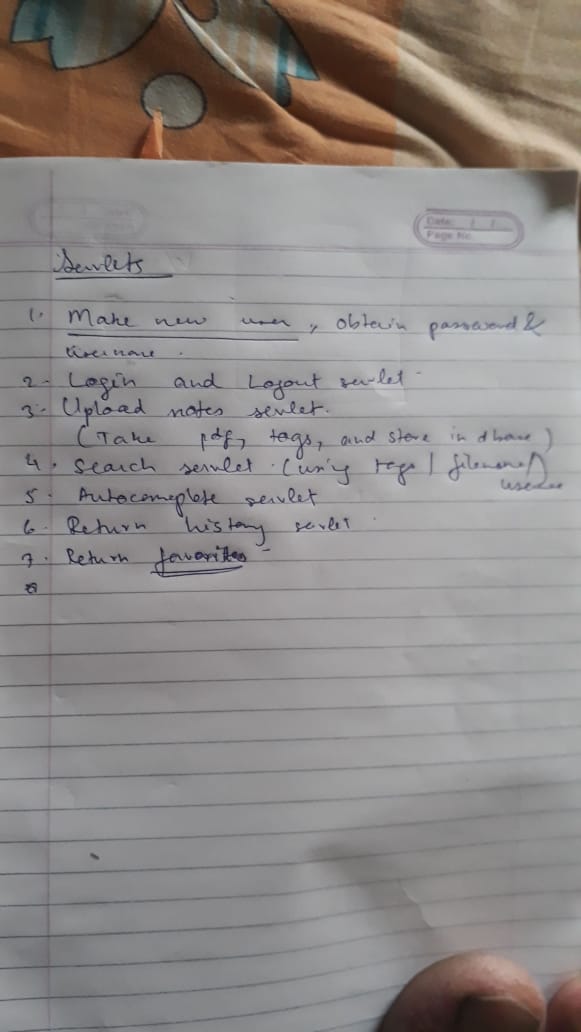 Date: / /
Page No.
Servlets
1. Make new user, obtain password &
username.
2. Login and Logout servlet
3. Upload notes servlet.
(Take pdf, tags, and store in dbase)
4. Search servlet. (using tags / filename/
user
5. Autocomplete servlet
6. Return history servlet
7. Return favorites